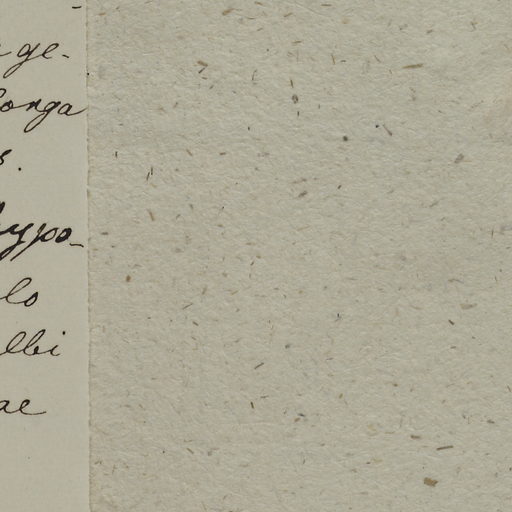 ge-
longa
s.
hypo-
lo
llbi
ae